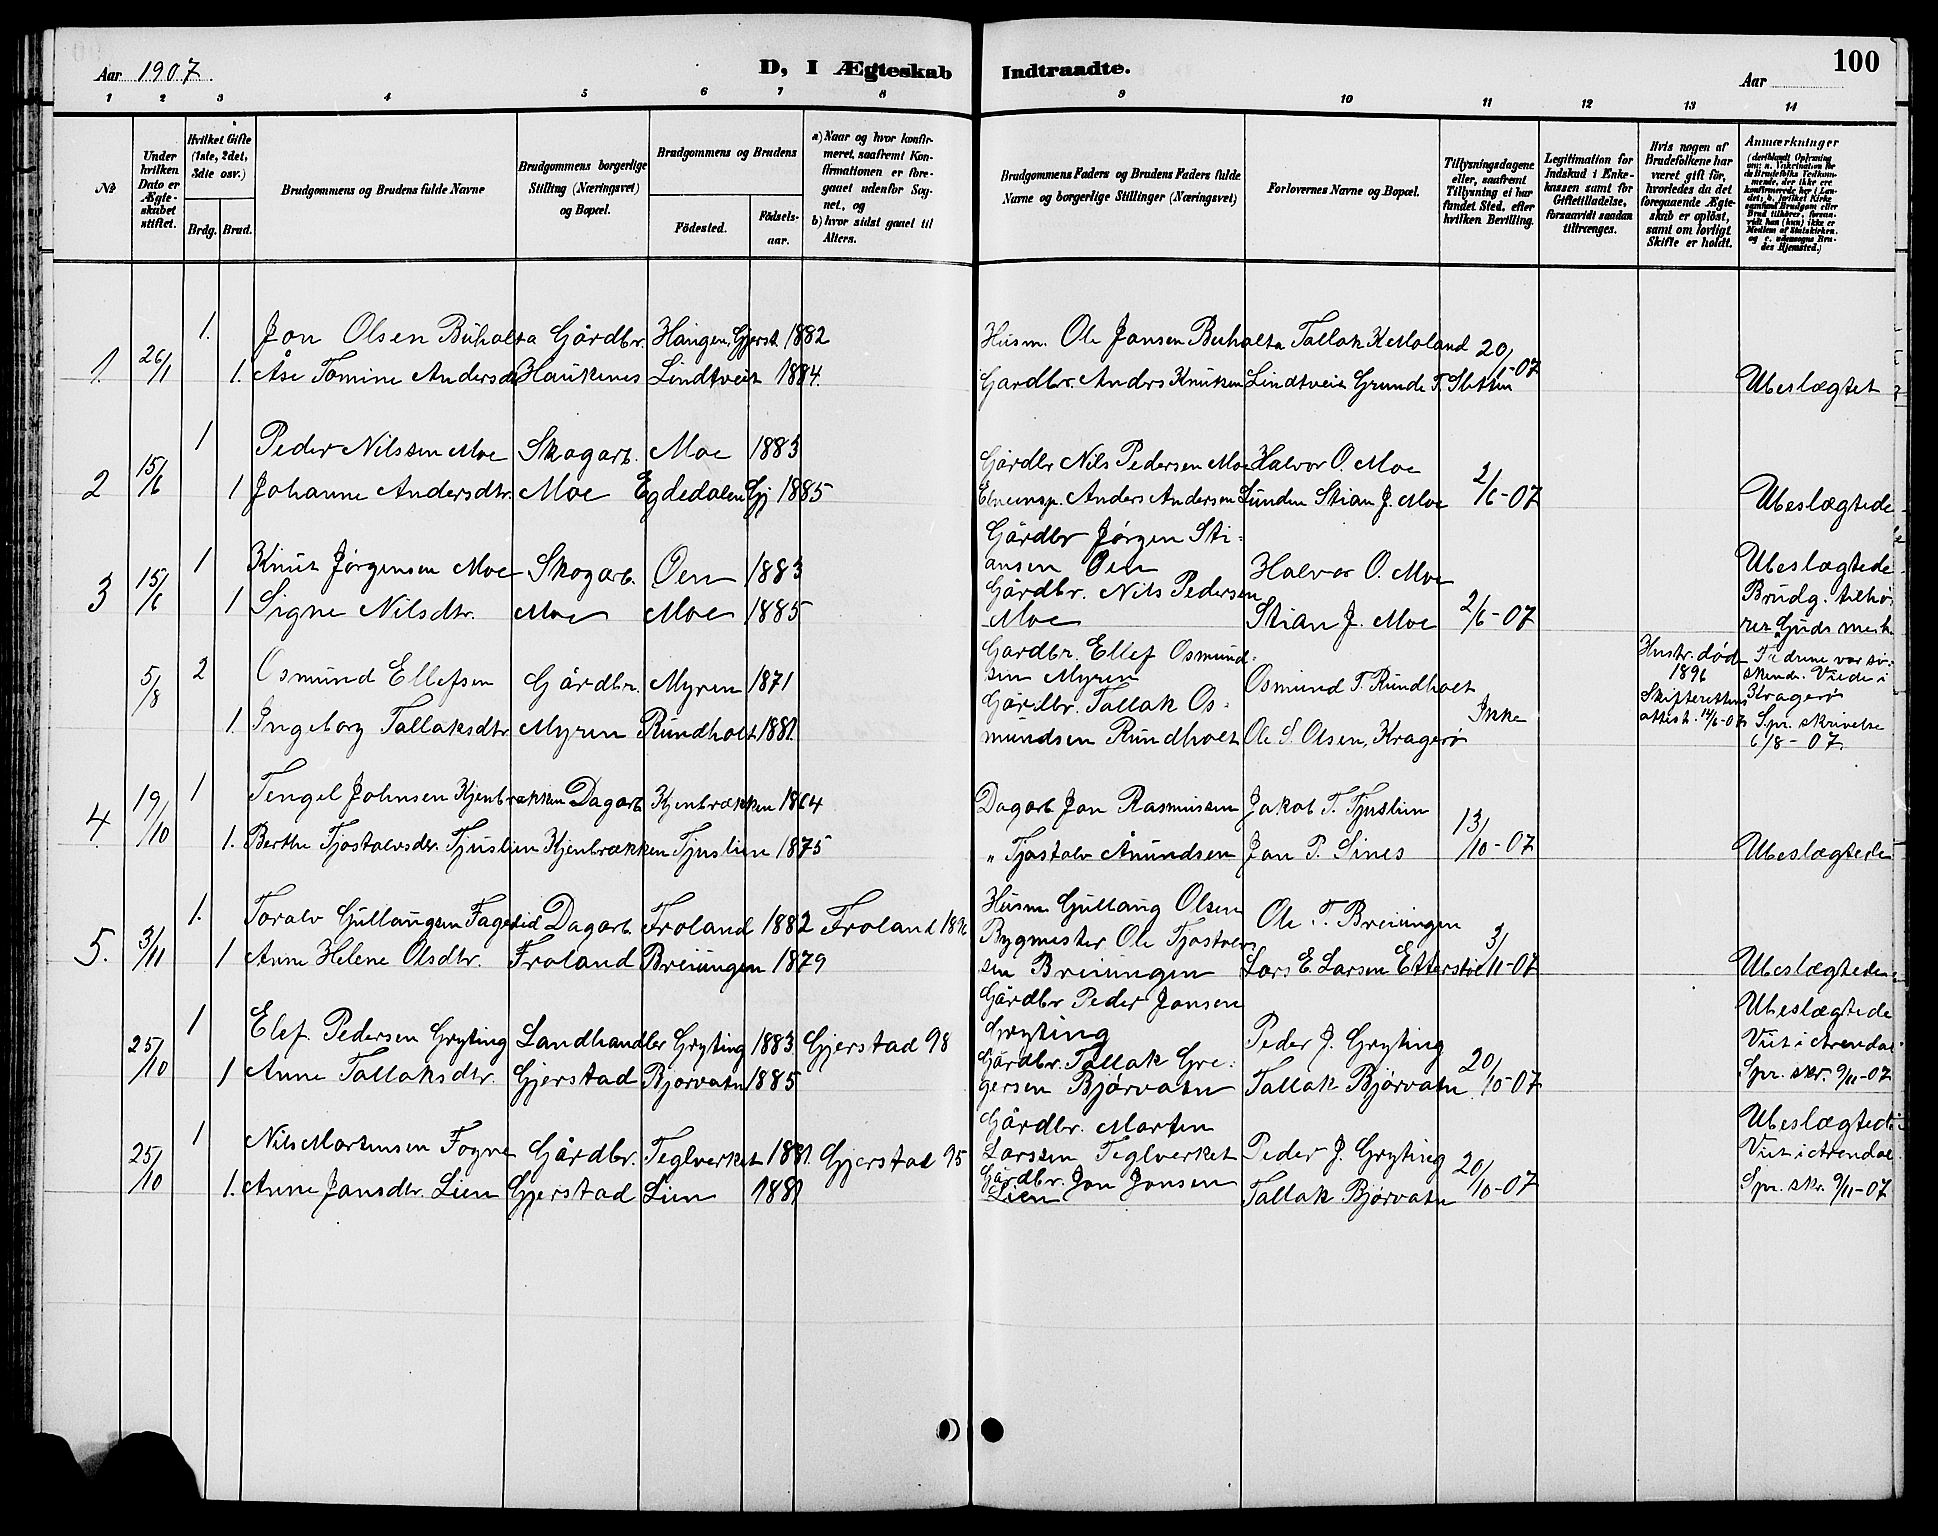 Aar 1907.
D, I Ægteskab Indtraadte.
Aar
100
1 2 3 4 5 6 7 8 9 10 11 12 13 14
No
Under hvilken Dato er Ægteskabet stiftet.
Hvilket Gifte (1ste, 2det, 3die osv.)
Brdg. Brud.
Brudgommens og Brudens fulde Navne
Brudgommens borgerlige Stilling (Næringsvei) og Bopæl.
Brudgommens og Brudens
Födested.
Födselsaar.
a) Naar og hvor konfirmeret, saafremt Konfirmationen er foregaaet udenfor Sognet, og
b) hvor sidst gaaet til Alters.
Brudgommens Faders og Brudens Faders fulde Navne og borgerlige Stillinger (Næringsvei)
Forlovernes Navne og Bopæl.
Tillysningsdagene eller, saafremt Tillysning ei har fundet Sted, efter hvilken Bevilling.
Legitimation for Indskud i Enkekassen samt for Giftetilladelse, forsaavidt saadan tiltrænges.
Hvis nogen af Brudefolkene har været gift för, hvorledes da det foregaaende Ægteskab er oplöst, samt om lovligt Skifte er holdt.
Anmærkninger
1. 26/1 1. Jon Olsen Buholta Gårdbr. Haugen, Gjerst. 1882 Husm. Ole Jansen Buholta Tallak K Moland 20/1-07
1. Åse Tomine Andersd Haukenes Lindtveit 1884. Gardbr. Anders Knuken Lindtveit Grunde T. Sletten Ubeslægtet
2 15/6 1 Peder Nilssen Moe Skogarb. Moe 1883 Gårdbr Nils Pedersen Moe Halvor O. Moe 2/6-07
1 Johanne Andersdtr. Moe Egdedalen Gj 1885 Anders Andersen Lunden Stian J. Moe Ubeslægtede
3 15/6 1 Knut Jørgensen Moe Skogarb. Oen 1883 Gårdbr Jørgen Stiansen Oen Halvor O. Moe 2/6-07 Ubeslægtede
1 Signe Nilsdtr. Moe Moe 1885 Gårdbr. Nils Pedersen Moe Stian J. Moe Brudg. tilhører Guds
5/8 2 Osmund Ellefsen Gårdbr. Myren 1871 Gardbr. Ellef Osmundsen Myren Osmund T. Rundholt Ikke Hustr. død 1896 Skifterettens attest. 14/6-07
1. Ingeborg Tallaksdtr Myren Rundholt 1881. Gårdbr. Tallak Osmundsen Rundholt Ole S. Olsen, Kragerø Fædrene var søskende. Viede i Kragerø Spr. skrivelse 6/8-07.
4. 19/10 1 Tengel Johnsen Kjenbrækken Dagarb. Kjenbrækken 1864 Dagarb Jon Rasmussen Jakob T. Tjuslien 13/10-07
1. Berthe Tjostolvsdtr. Tjuslien Kjenbrækken Tjuslien 1875 " Tjostolv Anundsen Jon P. Sines Ubeslægtede
5. 3/11 1. Toralv Gullaugsen Fagerlid Dagarb. Froland 1882 Froland Husm Gullaug Olsen Ole T. Breiungen 3/11-07
1 Anne Helene Olsdtr. Froland Breiungen 1879 Bygmester Ole Tjostolvsen Breiungen Lars E. Larsen Etterstøl Ubeslægtede
25/10 1 Elef. Pedersen Gryting Landhandler Gryting 1883 Gjerstad 98 Gårdbr Peder Jonsen Gryting Peder J. Gryting 20/10-07 Ubeslægtede
1 Anne Tallaksdtr. Gjerstad Bjorvatn 1885 Gårdbr. Tallak Gregersen Bjørvatn Tallak Bjørvatn Viet i Arendal. Spr. skr. 9/11-07
25/10 1 Nils Mortensen Fogne Gårdbr. Teglverket 1881. Gjerstad 95 Gårdbr. Morten Larssen Teglverket Peder J. Gryting 20/10-07 Ubeslægtede
1. Anne Jansdtr. Lien Gjerstad Lien 1881 Gårdbr. Jon Jonsen Lien Tallak Bjørvatn Viet i Arendal. Spr. skr. 9/11-07